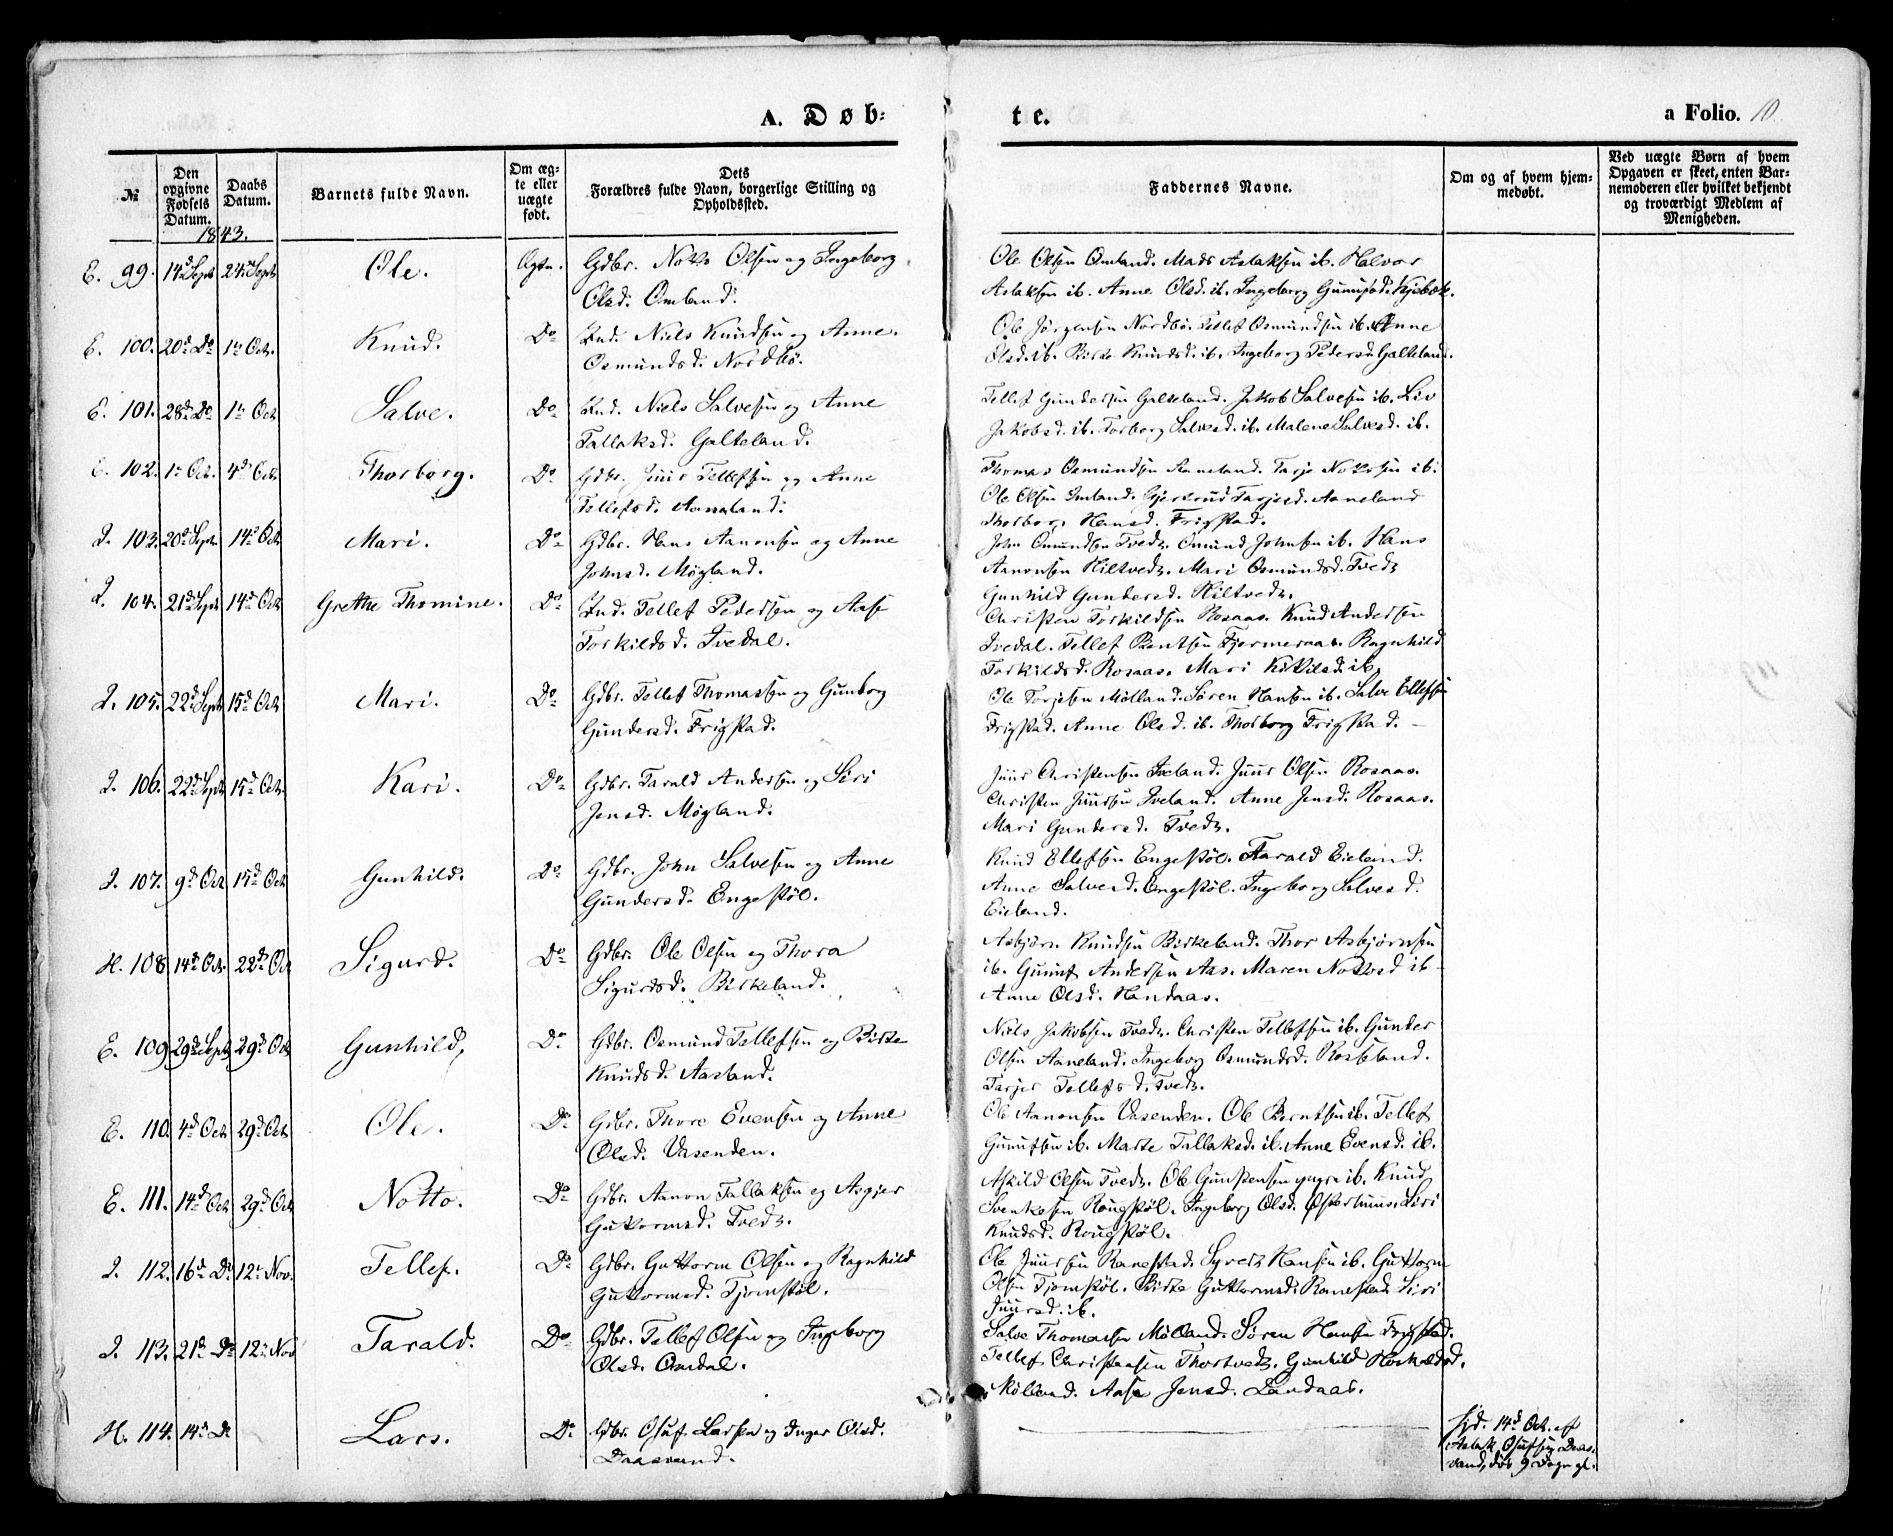 A. Døb-
te.
a Folio. 10
№
Den opgivne Fødsels Datum.
Daabs Datum.
Barnets fulde Navn.
Om ægte eller uægte født.
Dets Forældres fulde Navn, borgerlige Stilling og Opholdssted.
Faddernes Navne.
Om og af hvem hjemmedøbt.
Ved uægte Børn af hvem Opgaven er skeet, enten Barnemoderen eller hvilket bekjendt og troværdigt Medlem af Menigheden.
1843.
E. 99. 14d Sept 24n Sept Ole. Ægte. Gdbr. Notto Olsen og Ingeborg
Olsd. Omland.
Ole Olsen Omland. Mads Aslaksen ib. Halvor
Aslaksen ib. Anne Olsd. ib. Ingeborg Gunufsd. Kjebæk.
E. 100. 20d Do 1n Oct. Knud. Do Ind. Niels Knudsen og Anne
Osmundsd. Nordbö.
Ole Jörgensen Nordbö. Tellef Osmundsen ib. Anne
Olsd. ib. Birte Knudsd. ib. Ingeborg Pedersd. Galteland.
E. 101. 28d Do 1n Oct Salve. Do Ind. Niels Salvesen og Anne
Tallaksd. Galteland.
Tellef Gundersen Galteland. Jakob Salvesen ib. Liv
Jakobsd. ib. Torborg Salvesd. ib. Malene Salvesd. ib.
E. 102. 1n Oct. 4d Oct Thorborg. Do Gdbr. Juur Tellefsen og Anne
Tellefsd. Aaneland.
Thomas Osmundsen Aaneland. Tarje Nottosen ib.
Ole Olsen Omland. Gjertrud Tarjesd. Aaneland
Thorborg Hansd. Frigstad.
I. 103. 20d Sept. 14d Oct Mari. Do Gdbr. Hans Aanonsen og Anne
Johnsd. Mögland.
John Omundsen Tvedt. Omund Johnsen ib. Hans
Aanonsen Hiltvedt. Mari Osmundsd. Tvedt
Gunhild Gundersd. Hiltvedt.
I. 104. 21d Sept 14d Oct Grethe Thomine. Do Ind. Tellef Pedersen og Aase
Torkildsd. Ivedal.
Christen Torkildsen Rosaas. Knud Andersen
Ivedal. Tellef Berntsen Fjermeraas. Ragnhild
Torkildsd. Rosaas. Mari Kittilsd. ib.
I. 105. 22d Sept 15d Oct Mari. Do Gdbr. Tellef Thomassen og Gunborg
Gundersd. Frigstad.
Ole Torjesen Mölland. Sören Hansen ib. Salve Ellefsen
Frigstad. Anne Olsd. ib. Thorborg Frigstad.
I. 106. 22d Sept 15d Oct. Kari. Do Gdbr. Tarald Andersen og Siri
Jensd. Mögland.
Juur Christensen Iveland. Juur Olsen Rosaas.
Christen Juursen Iveland. Anne Jensd. Rosaas.
Mari Gundersd. Tvedt.
I. 107. 9d Oct 15d Oct Gunhild. Do Gdbr. John Salvesen og Anne
Gundersd. Engestöl.
Knud Ellefsen Engestöl. Tarald Eieland.
Anne Salvesd. Engestöl. Ingeborg Salvesd.
Eieland.
H. 108 14d Oct. 22d Oct Sigurd. Do Gdbr. Ole Olsen og Thora
Sigurdsd. Birkeland.
Asbjörn Knudsen Birkeland. Thor Asbjörnsen
ib. Gunuf Andersen Aas. Maren Nottosd. ib
Anne Olsd. Handaas.
E. 109 29d Sept 29d Oct Gunhild, Do Gdbr. Osmund Tellefsen og Birte
Knudsd. Aasland.
Niels Jakobsen Tvedt. Christen Tellefsen ib. Gunder
Olsen Aaneland. Ingeborg Osmundsd. Rosseland.
Tarjer Tellefsd. Tvedt.
E. 110. 4d Oct 29d Oct Ole. Do Gdbr. Thore Evensen og Anne
Olsd. Vasenden.
Ole Aanonsen Vasenden. Ole Berntsen ib. Tellef
Gunufsen ib. Marte Tallaksd. ib. Anne Evensd. ib.
E. 111. 14d Oct 29d Oct Notto. Do Gdbr. Aanon Tallaksen og Asgjer
Guttormsd. Tvedt.
Askild Olsen Tvedt. Ole Gunstensen yngre ib. Knud
Svenkesen Rougstöl. Ingeborg Olsd. Østerhuus. Siri
Knudsd. Rougstöl.
I. 112. 16d Do 12n Nov. Tellef. Do Gdbr. Guttorm Olsen og Ragnhild
Guttormsd. Tjomstöl.
Ole Juursen Ranestad. Syvert Hansen ib. Guttorm
Olsen Tjomstöl. Birte Guttormsd. Ranestad. Siri
Juursd. ib.
I. 113. 21d Do 12n Nov Tarald. Do Gdbr. Tellef Olsen og Ingeborg
Olsd. Omdal.
Salve Thomassen Mölland. Sören Hansen Frigstad.
Tellef Christensen Thortvedt. Gunhild
Mölland. Aase Jensd. Landaas.
H. 114. 14d Do Lars. Do Gdbr. Osuf Larsen og Inger Olsd.
Daasvand.
Hjd. 14d Oct. af
Aslak Osufsen Daas-
vand, död 9 Dage gl.